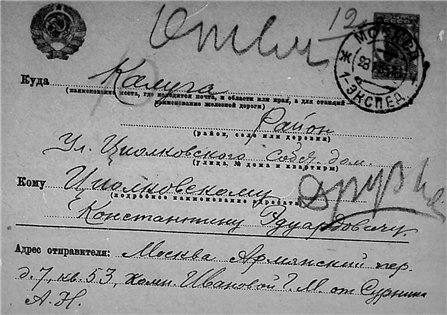 Ответ
19
МОСКВА
23
Ж
1-ЭКСПЕД.
Куда Калуга
(наименование места, где находится почта, и области или края, а для станций —
наименование железной дороги)
Район
(район, село или деревня)
Ул. Циолковского Собст. дом.
(улица, № дома и квартиры)
Кому Циолковскому
(подробное наименование адресата)
Константину Эдуардовичу
Адрес отправителя: Москва Армянский пер.
д. 7, кв. 53, комн. Ивановой Г. М. от Сурнина
А. Н.